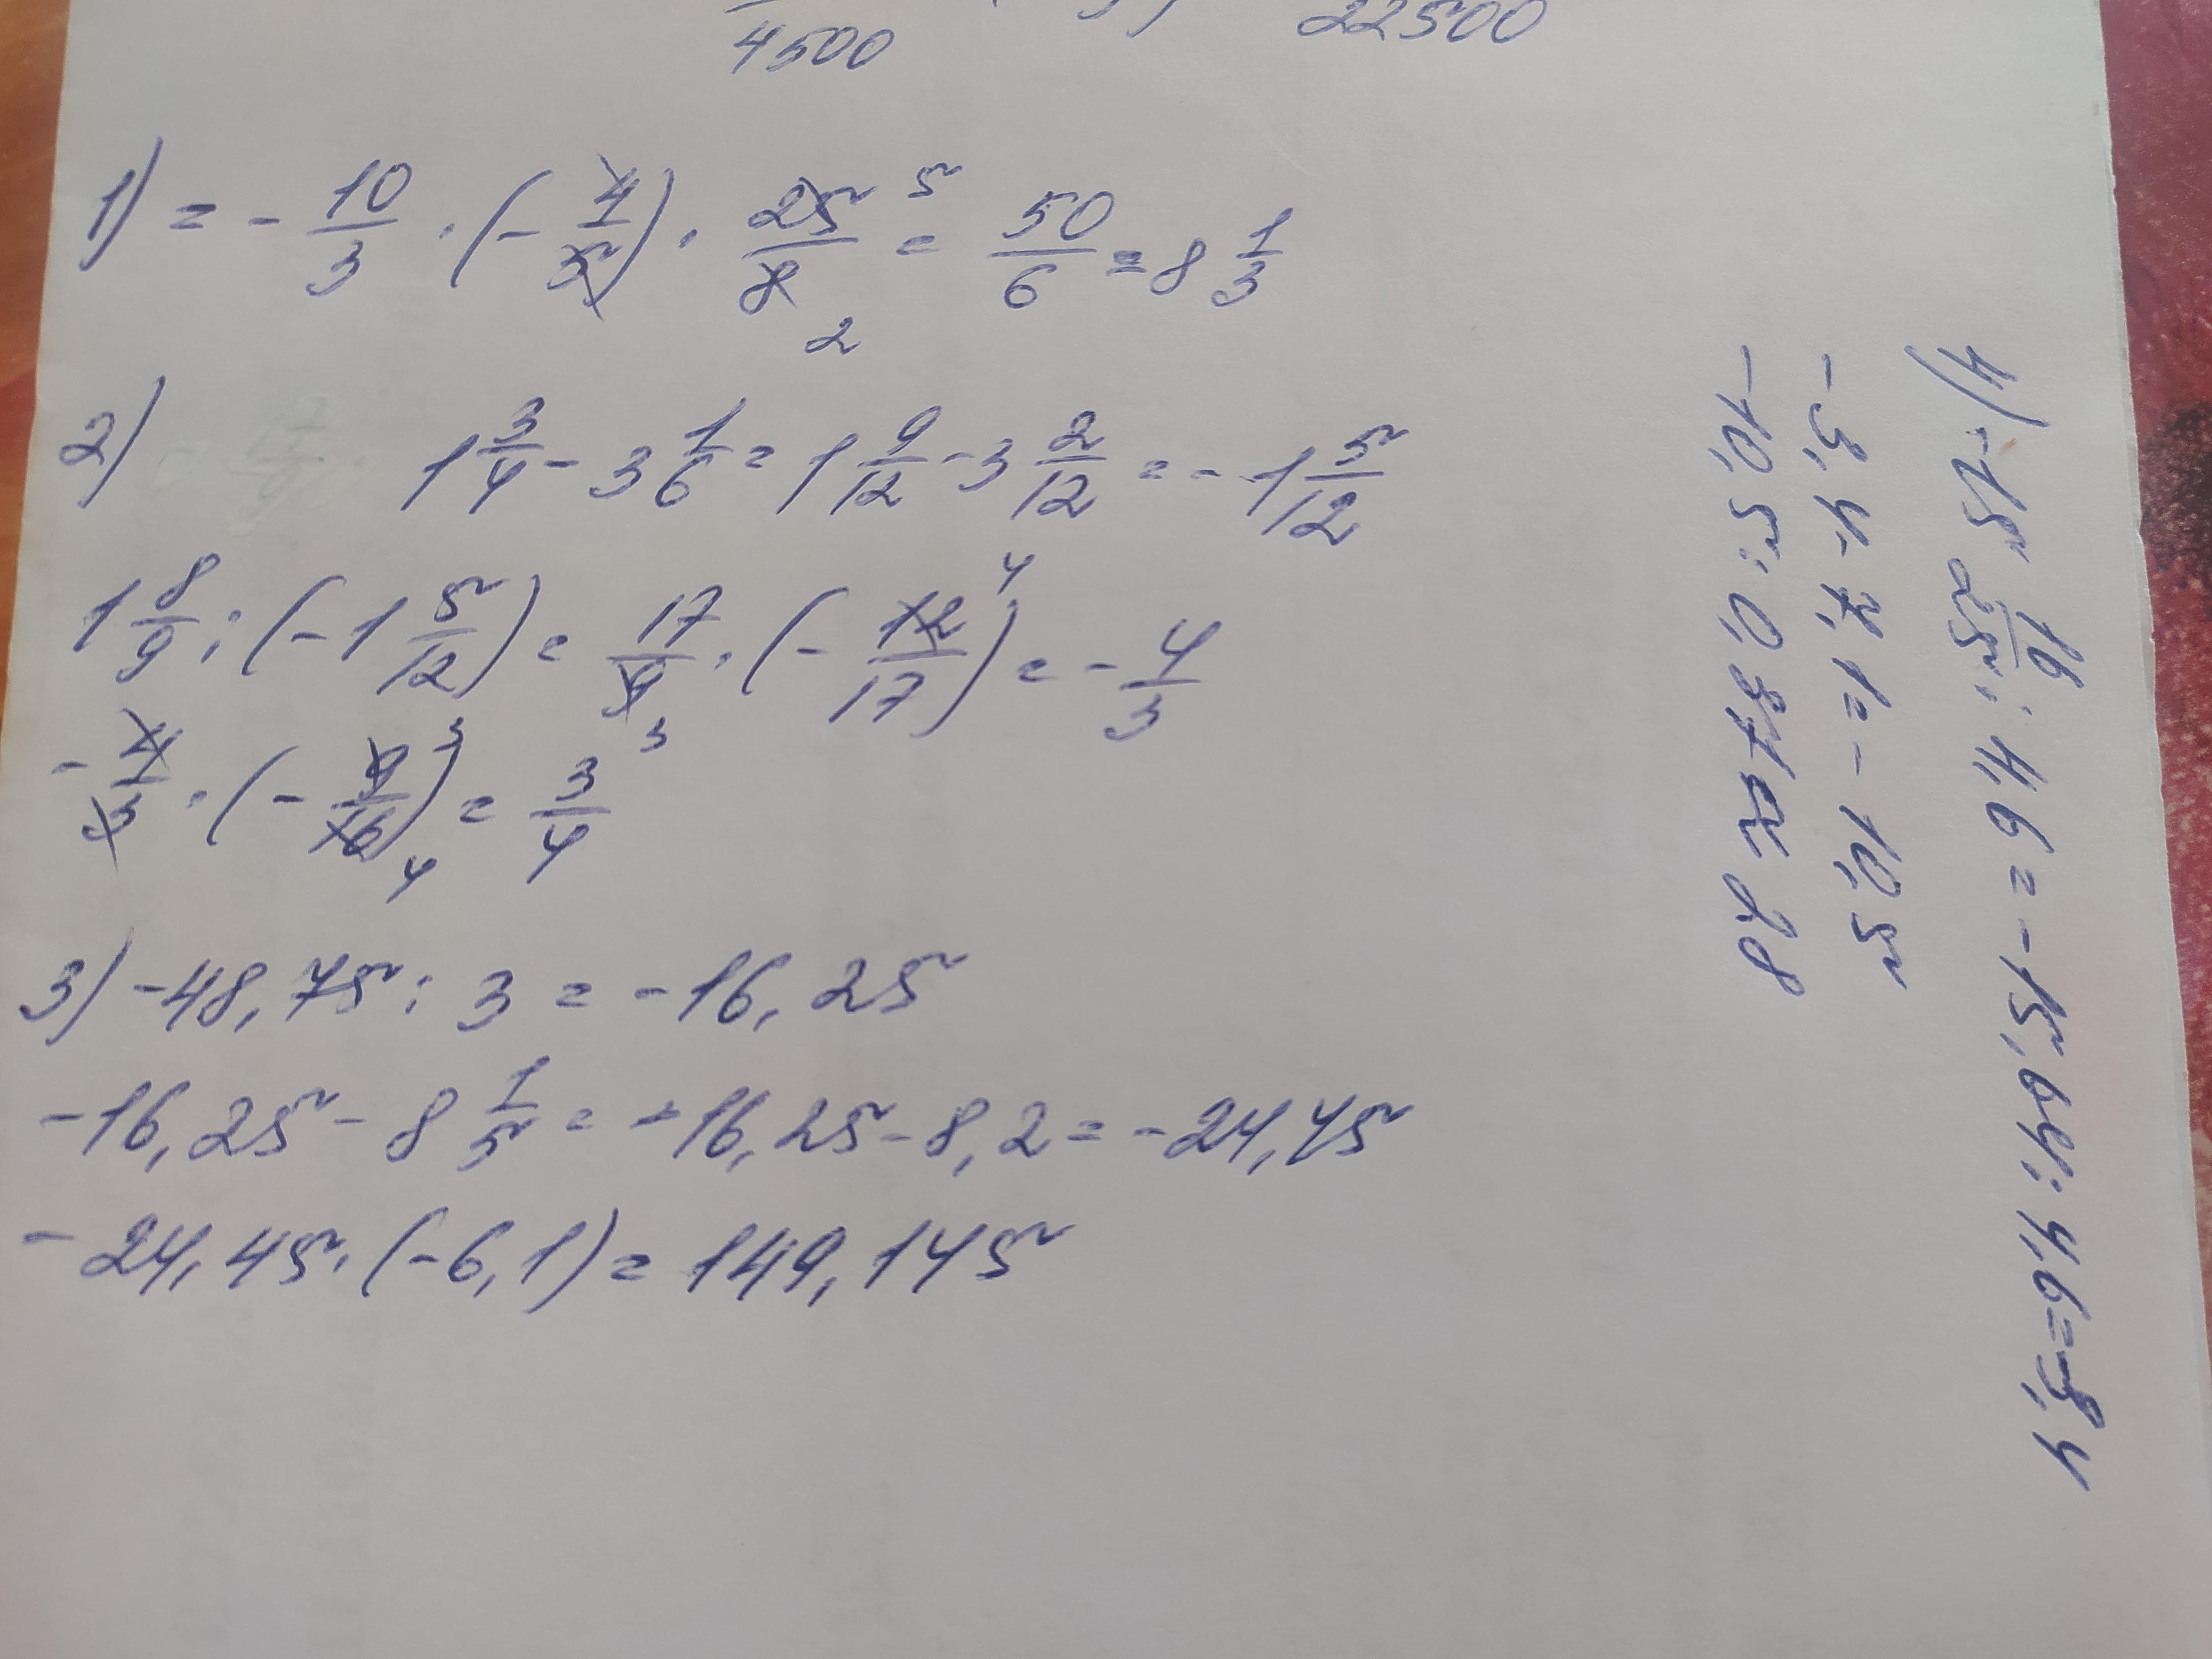 4500 22500
1) = - 10/3 · (- 4/5) · 25/8 5 2 = 50/6 = 8 1/3
2) 1 3/4 - 3 1/6 = 1 9/12 - 3 2/12 = - 1 5/12
1 8/9 : (- 1 5/12) = 17/9 3 · (- 12/17) 4 = - 4/3
- 4/3 · (- 9/16) 3 4 = 3/4
3) -48,75 : 3 = -16,25
-16,25 - 8 1/5 = -16,25 - 8,2 = -24,45
-24,45 · (-6,1) = 149,145
4) -15 16/25 : 4,6 = -15,64 : 4,6 = -3,4
-3,4 - 7,1 = -10,5
-10,5 : 0,375 = -28